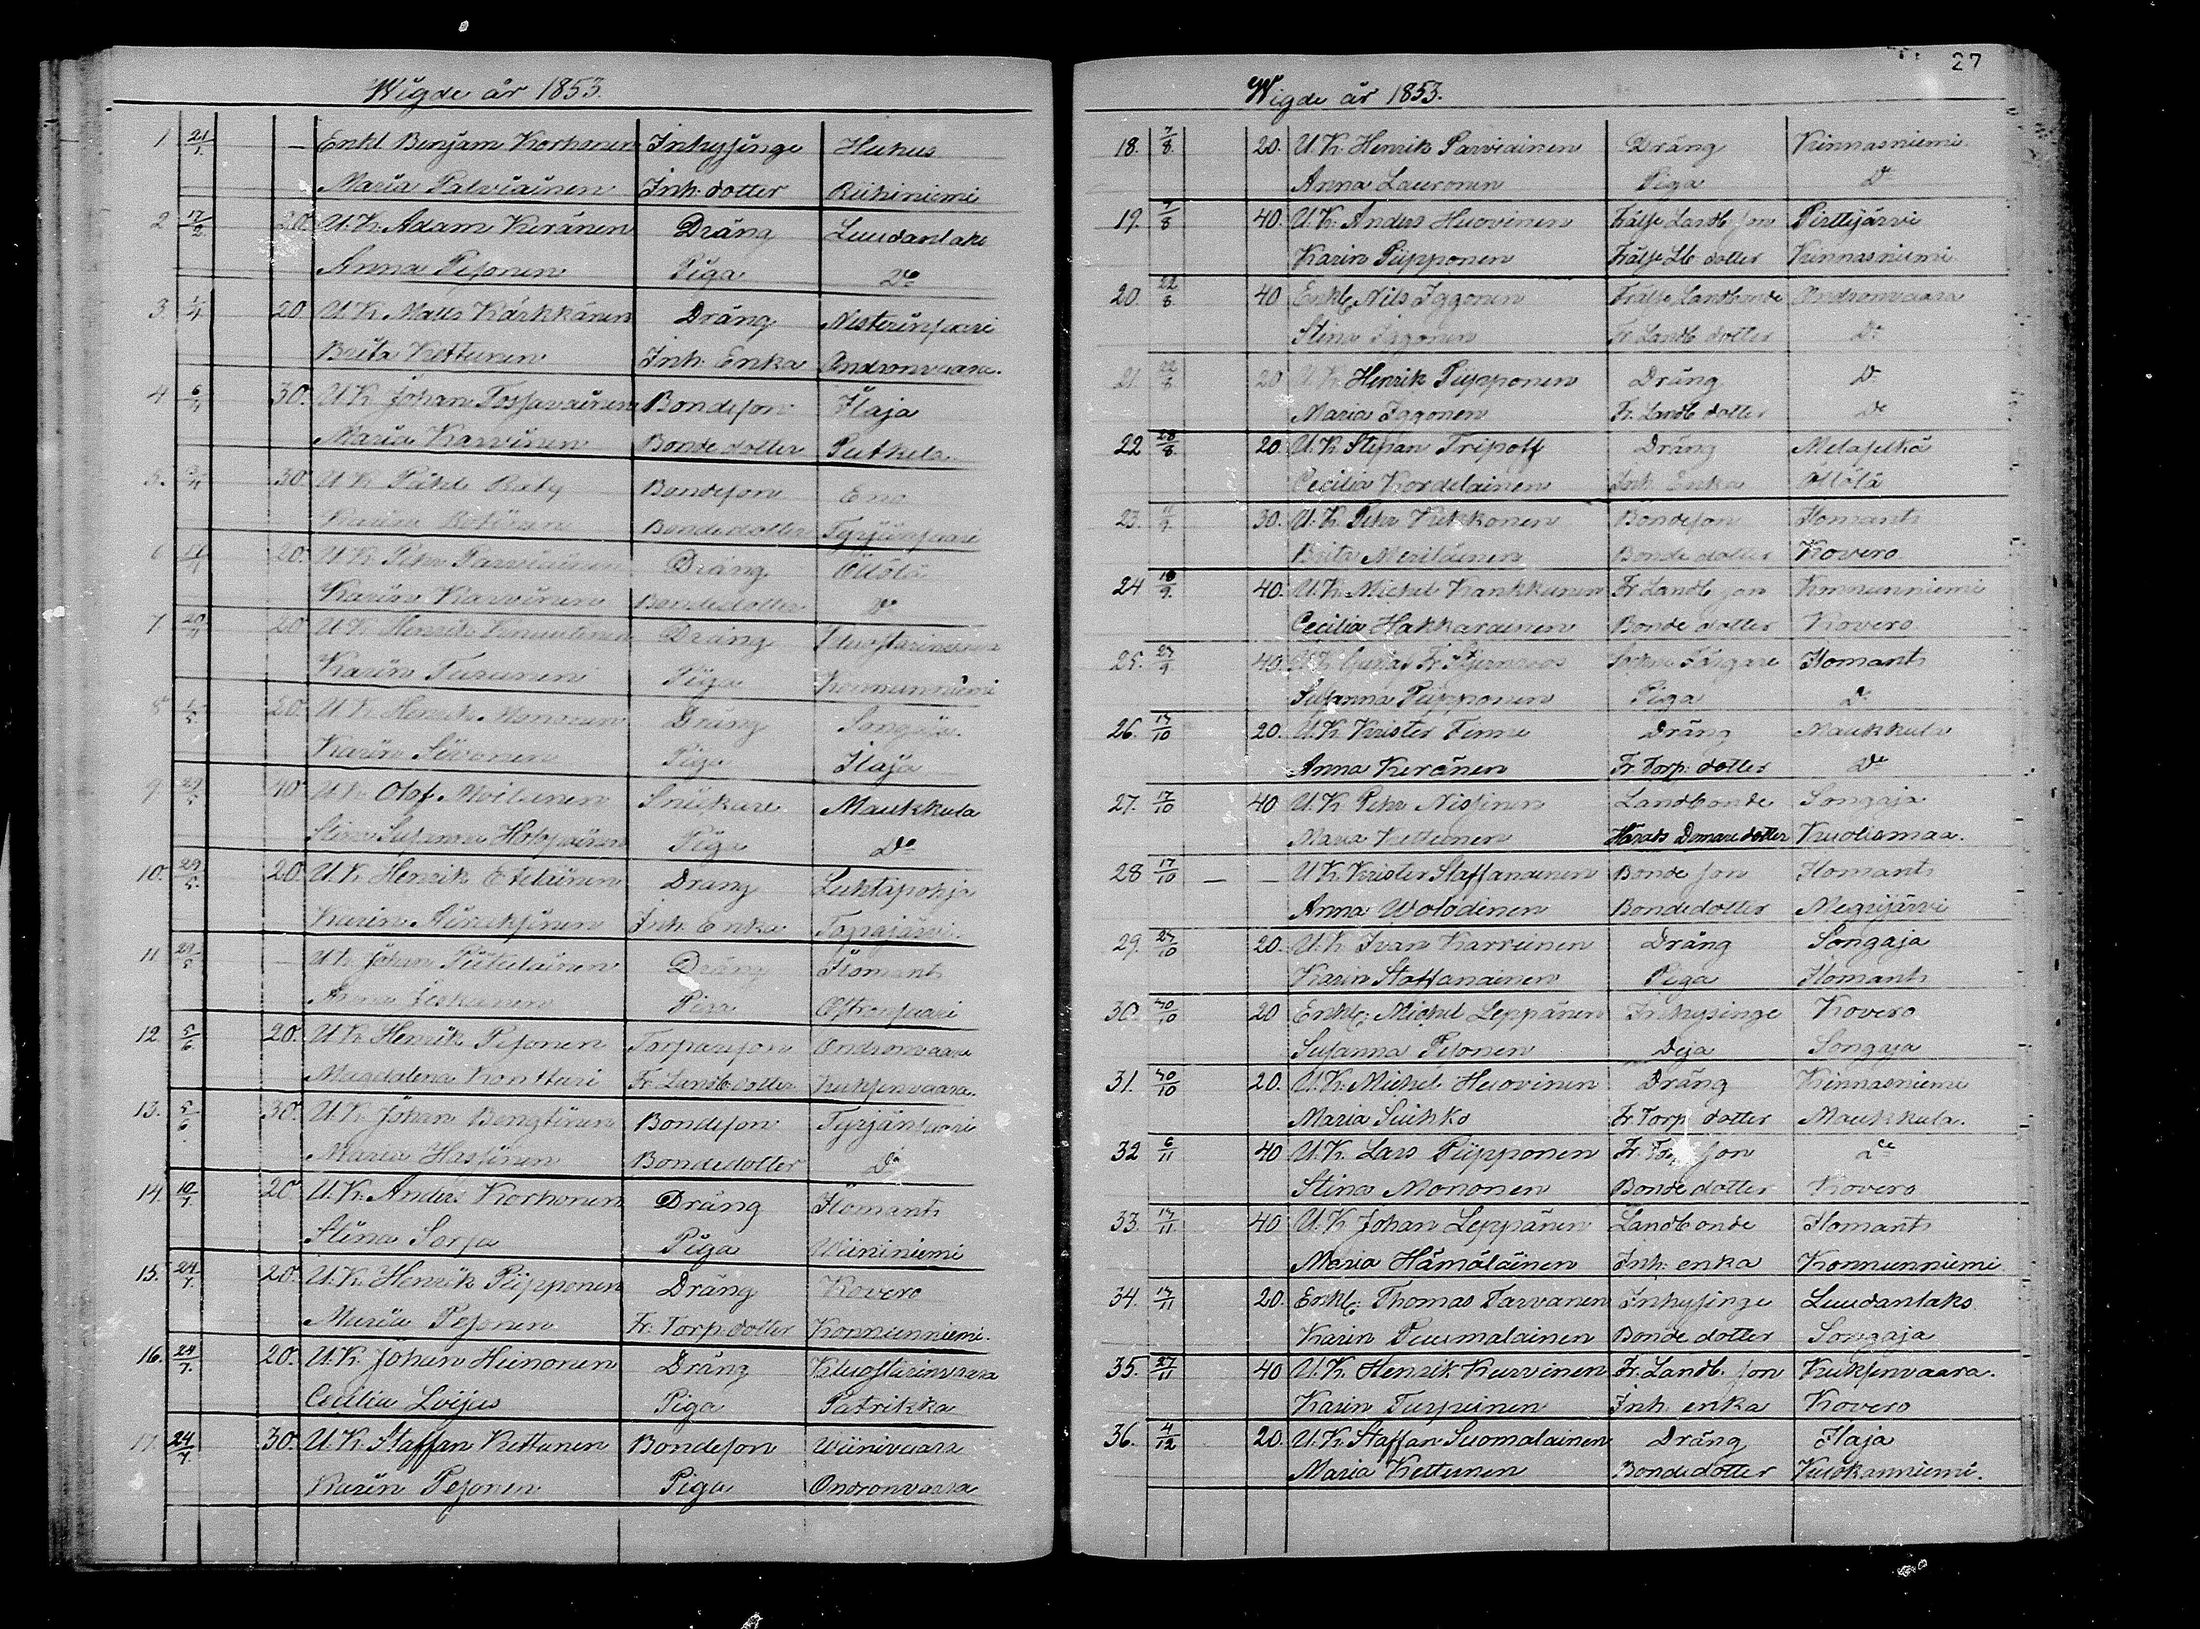 Wigde år 1853.
1 21/1. — Enkl. Benjam Korhonen Inhysinge Huhus
Maria Parviainen Inh. dotter Riihiniemi
2 17/2. 20. U.K. Adam Keränen Dräng Luudanlaks
Anna Pesonen Piga Do
3. 1/4 20 U.K. Matts Kärkkänen Dräng Nesterinsaari
Brita Kettunen Inh. Enka Andronvaara.
4 6/4 30. U.K. Johan Tossavainen Bondeson Ilaja
Maria Karvinen Bonde dotter Putkela
5. /4 30. U.K. Bondeson Eno
Karin Bondedotter Tyrjänsaari
6 /4 20. U.K. Petr Parviainen Dräng Öllölä
Karin Karvinen Bondedotter Do
7. 20/4 20 U.K. Henrik Knuutinen Dräng
Karin Turunen Piga Konnunniemi
8 1/5. 20. U.K. Henrik Mononen Dräng Songaja.
Karin Sivonen Piga Ilaja
9. 29/5 40 U.K. Olof Moilanen Snickare Maukkula
Stina Susanna Holopainen Piga Do
10. 29/5. 20. U.K. Henrik Eteläinen Dräng Luhtapohja
Karin Inh. Enka
11 29/5 — U.K. Johan Piitulainen Dräng Ilomants
Anna Piga Oskonsaari
12. 5/6. 20. U.K. Henrik Pesonen Torpareson Andronvaara
Magdalena Konttari Fr. Landb. dotter Kuksenvaara.
13. 5/6. 30. U.K. Johan Bengtinen Bondeson Tyrjänsaari
Maria Hassinen Bondedotter Do
14. 10/7. 20 U.K. Anders Korhonen Dräng Ilomants
Stina Sorsa Piga Wiininiemi
15. 24/7. 20. U.K. Henrik Piipponen Dräng Kovero
Maria Pesonen Fr. Torp. dotter Konnunniemi.
16. 24/7. 20. U.K. Johan Heinonen Dräng Kluostarinvaara
Cecilia Loijas Piga Patrikka
17. 24/7 30. U.K. Staffan Kettunen Bondeson Wiinivaara
Karin Pesonen Piga Andronvaara
27
Wigde år 1853.
18. 7/8. 20. U.K. Henrik Parviainen Dräng Kinnasniemi.
Anna Lauronen Piga Do
19. 7/8 40. U.K. Anders Huovinen Frälse Landb. son Piilijärvi
Karin Piipponen Frälse Lb. dotter Kinnasniemi
20. 22/8 40 Enkl. Nils Iggonen Frälse Landbonde Andronvaara
Stina Iggonen Fr. Landb. dotter Do
21 22/8 20 U.K. Henrik Piipponen Dräng Do
Maria Iggonen Fr. Landb. dotter Do
22 28/8. 20. U.K. Stepan Tripoff Dräng Melaselkä
Cecilia Kordelainen Inh. Enka Öllölä
23. 11/9. 30. U.K. Petr Kukkonen Bondeson Ilomants
Brita Meriläinen Bonde dotter Kovero
24 18/9. 40. U.K. Michel Kankkunen Fr. Landb. son Konnunniemi
Cecilia Hakkarainen Bonde dotter Kovero
25. 27/9. 40. U.K. Gustaf Fr. Stjernroos Socken Färgare Ilomants
Susanna Piipponen Piga Do
26. 17/10 20. U.K. Krister Finne Dräng Maukkula
Anna Keränen Fr. Torp. dotter Do
27. 17/10 40 U.K. Petr Nissinen Landbonde Songaja
Maria Kettunen Härads Domare dotter Kuolismaa.
28 17/10 — — U.K. Krister Staffanainen Bonde son Ilomants
Anna Wolodinen Bondedotter Megrijärvi
29. 27/10 20. U.K. Ivan Karvinen Dräng Songaja
Karin Staffanainen Piga Ilomants
30. 30/10 20 Enkl. Michel Leppänen Inhysinge Kovero
Susanna Pesonen Deja Songaja
31. 30/10 20. U.K. Michel Huovinen Dräng Kinnasniemi
Maria Siihko Fr. Torp dotter Maukkula.
32 6/11 40 U.K. Lars Piipponen Fr. Torp son Do
Stina Mononen Bonde dotter Kovero
33. 13/11 40 U.K. Johan Leppänen Landbonde Ilomants
Maria Hämäläinen Inh. enka Konnunniemi
34. 13/11 20. Enkl. Thomas Tarvanen Inhysinge Luudanlaks.
Karin Puumalainen Bonde dotter Songaja
35. 27/11 40 U.K. Henrik Kurvinen Fr. Landb. son Kuksenvaara.
Karin Turpeinen Inh. enka Kovero
36. 4/12 20. U.K. Staffan Suomalainen Dräng Ilaja
Maria Kettunen Bondedotter Kuokanniemi.